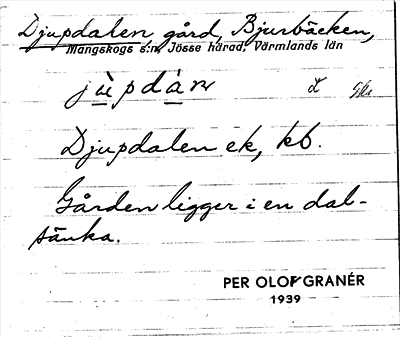 Djupdalen, gård, Bjurbäcken,
Mangskogs s:n, Jösse härad, Värmlands län
Djupdalen ek, kb.
Gården ligger i en dal-
sänka.
PER OLOF GRANÉR
1939